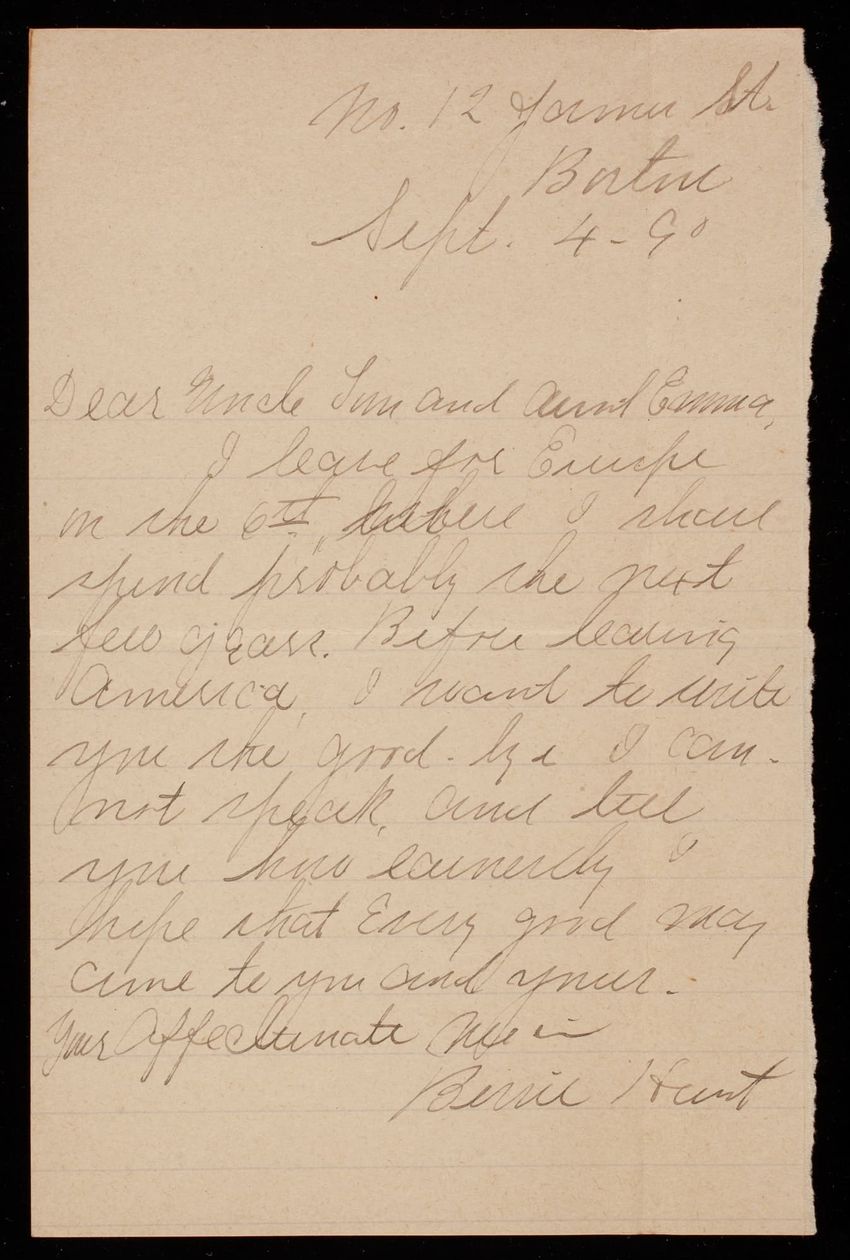 No. 12 James St.
Boston
Sept. 4 - 90
Dear Uncle Tom and Aunt Emma,
I leave for Europe
on the 6th, where I shall
spend probably the next
few years. Before leaving
America, I want to write
you the good-bye I can-
not speak, and tell
you how earnestly I
hope that Every good may
come to you and yours.
Your Affectionate
Hunt